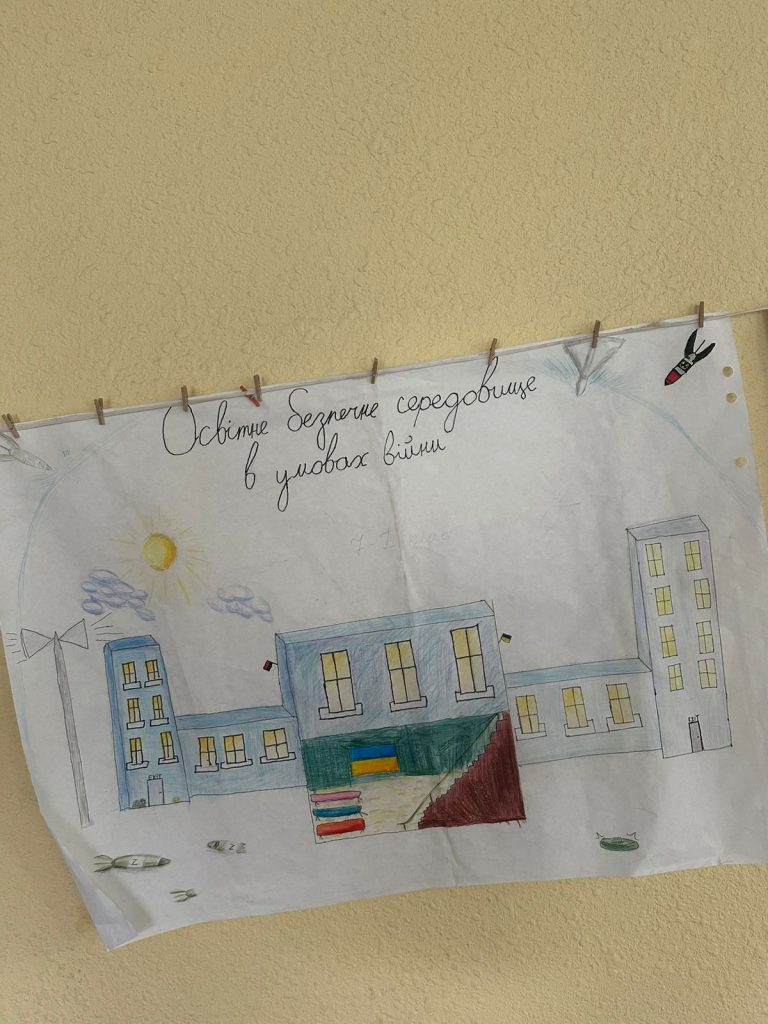 Освітнє безпечне середовище
в умовах війни
EXIT
EXIT
Z
Z